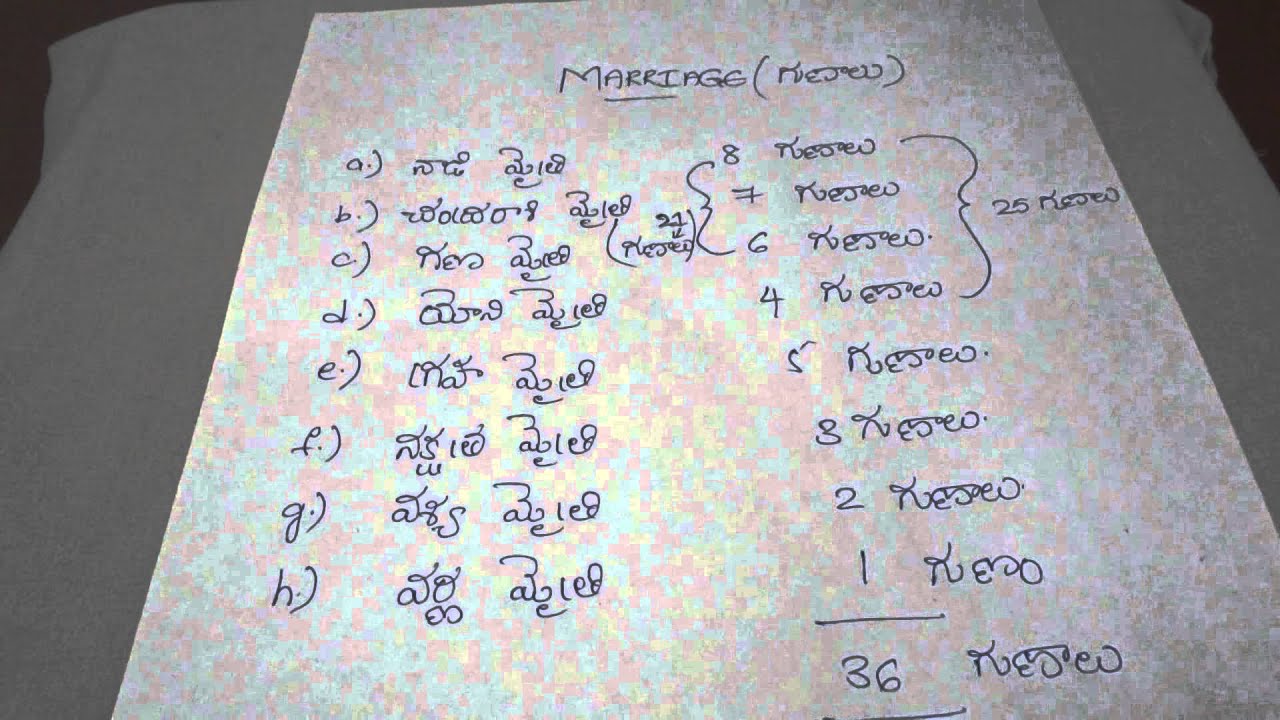 MARRIAGE (గుణాలు)
a.) నాడి మైత్రి 8 గుణాలు
b.) చంద్రరాశి మైత్రి 7 గుణాలు
(21 గుణాలు) 25 గుణాలు
c.) గణ మైత్రి 6 గుణాలు.
d.) యోని మైత్రి 4 గుణాలు
e.) గ్రహ మైత్రి 5 గుణాలు.
f.) నక్షత్ర మైత్రి 3 గుణాలు.
g.) వశ్య మైత్రి 2 గుణాలు.
h.) వర్ణ మైత్రి 1 గుణం
36 గుణాలు